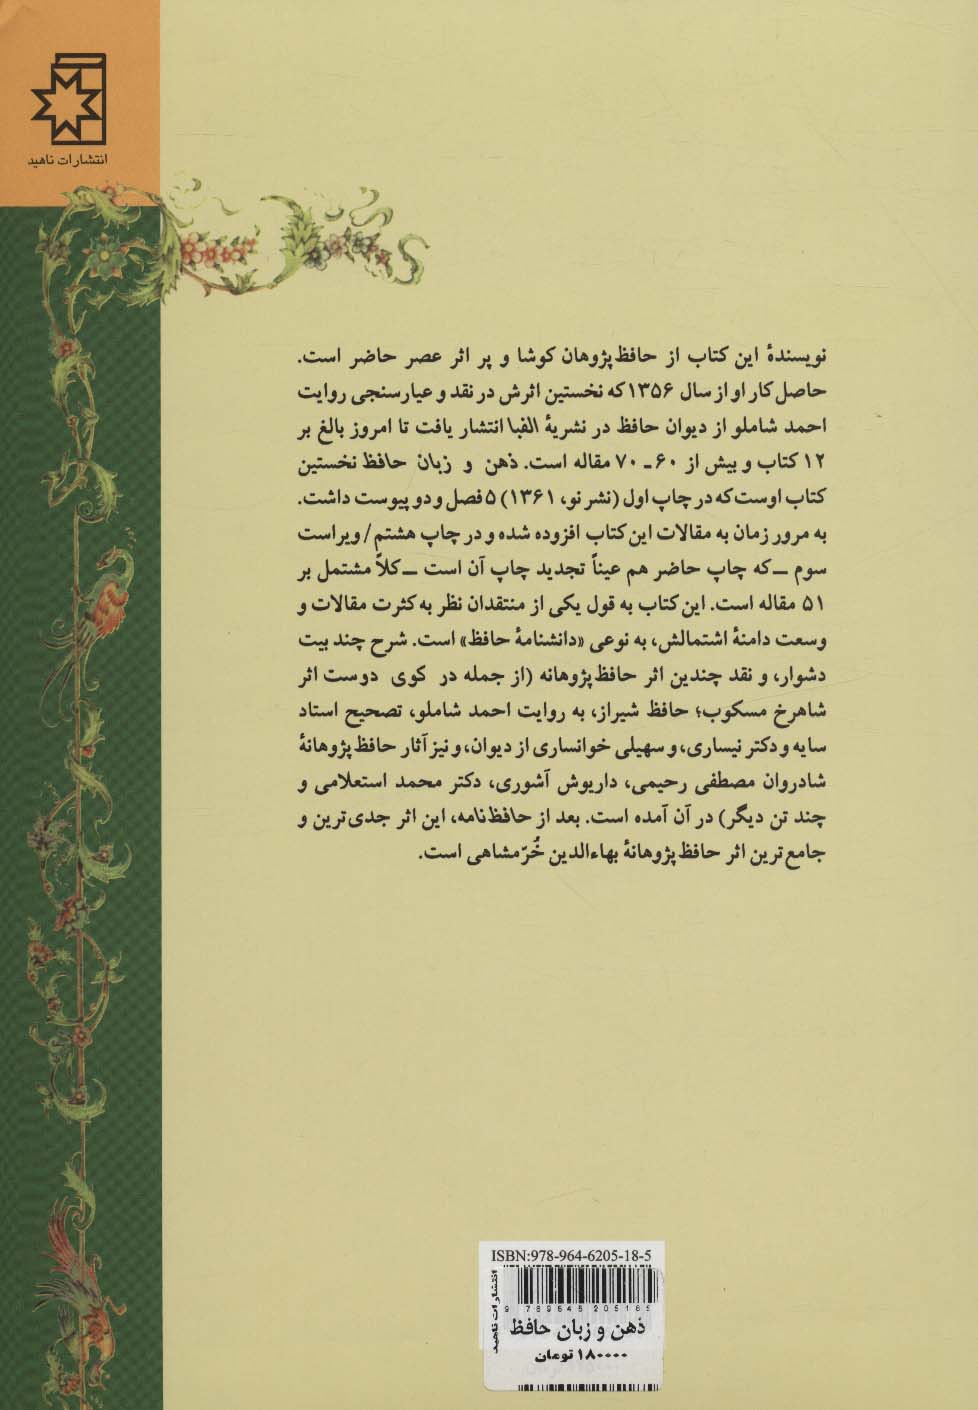 انتشارات ناهید
نویسندهٔ این کتاب از حافظ‌پژوهان کوشا و پر اثر عصر حاضر است.
حاصل کار او از سال ۱۳۵۶ که نخستین اثرش در نقد و عیارسنجی روایت
احمد شاملو از دیوان حافظ در نشریهٔ الفبا انتشار یافت تا امروز بالغ بر
۱۲ کتاب و بیش از ۶۰ ـ ۷۰ مقاله است. ذهن و زبان حافظ نخستین
کتاب اوست که در چاپ اول (نشر نو، ۱۳۶۱) ۵ فصل و دو پیوست داشت.
به مرور زمان به مقالات این کتاب افزوده شده و در چاپ هشتم / ویراست
سوم ــ که چاپ حاضر هم عیناً تجدید چاپ آن است ــ کلاً مشتمل بر
۵۱ مقاله است. این کتاب به قول یکی از منتقدان نظر به کثرت مقالات و
وسعت دامنهٔ اشتمالش، به نوعی «دانشنامهٔ حافظ» است. شرح چند بیت
دشوار، و نقد چندین اثر حافظ‌پژوهانه (از جمله در کوی دوست اثر
شاهرخ مسکوب؛ حافظ شیراز، به روایت احمد شاملو، تصحیح استاد
سایه و دکتر نیساری، و سهیلی خوانساری از دیوان، و نیز آثار حافظ‌پژوهانهٔ
شادروان مصطفی رحیمی، داریوش آشوری، دکتر محمد استعلامی و
چند تن دیگر) در آن آمده است. بعد از حافظ‌نامه، این اثر جدی‌ترین و
جامع‌ترین اثر حافظ‌پژوهانهٔ بهاءالدین خُرّمشاهی است.
ISBN:978-964-6205-18-5
انتشارات ناهید
9 789646 205185
ذهن و زبان حافظ
۱۸۰۰۰۰ تومان